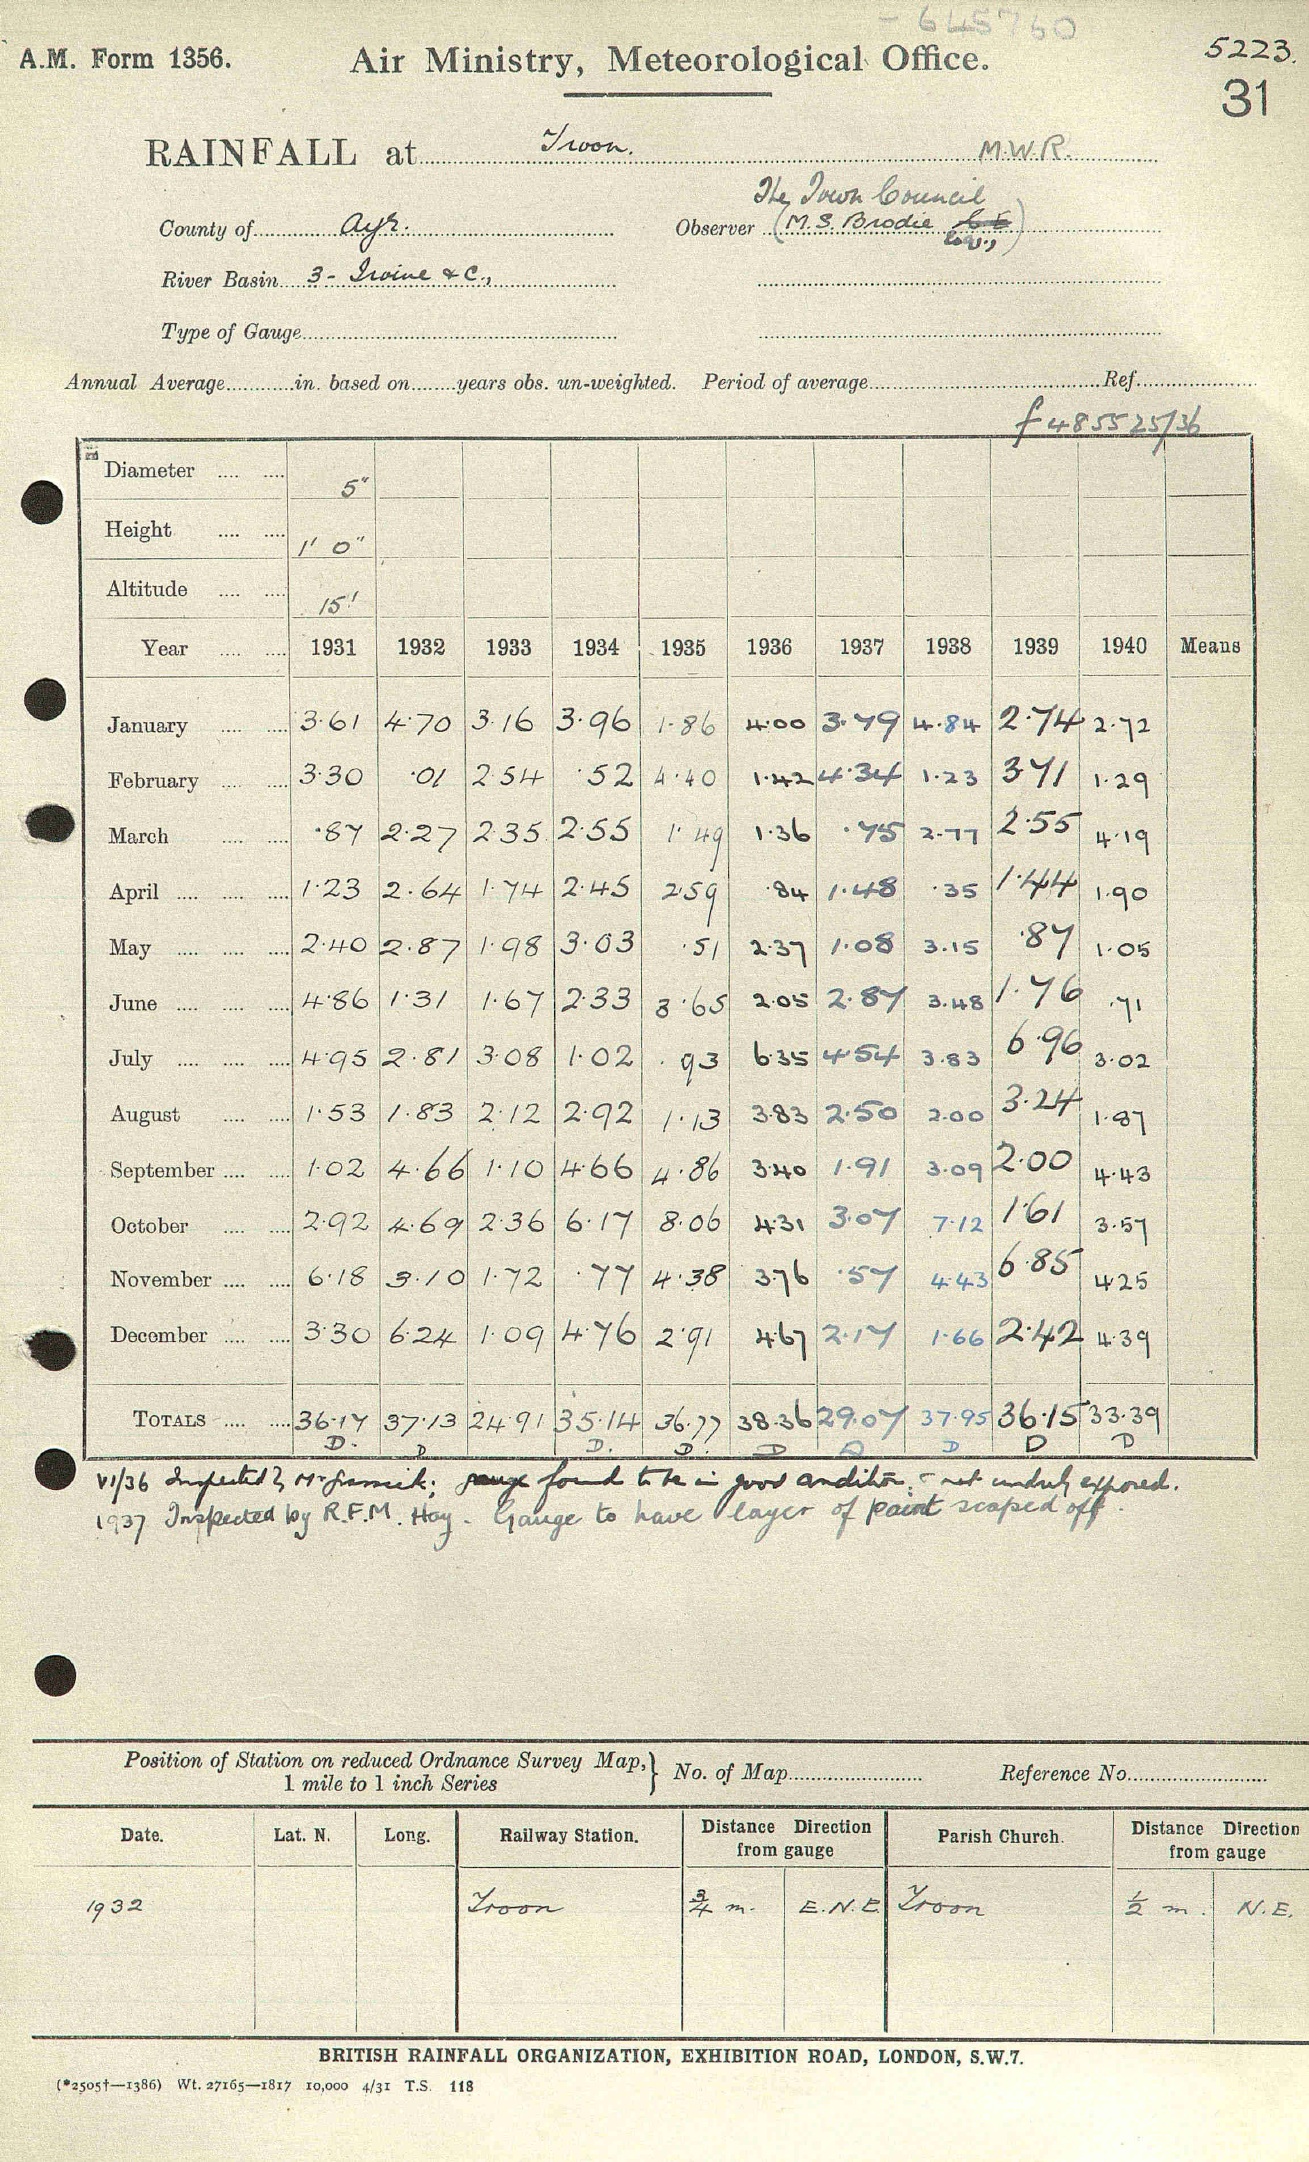 - 645760
A.M. Form 1356. Air Ministry, Meteorological Office. 5223.
31
RAINFALL at Troon. M.W.R.
The Town Council
County of Ayr. Observer (M.S. Brodie Esq.,)
River Basin 3 - Irvine & C.,
Type of Gauge
Annual Average in. based on years obs. un-weighted. Period of average Ref.
f 485525/36
Diameter 5"
Height 1' 0"
Altitude 15'
Year 1931 1932 1933 1934 1935 1936 1937 1938 1939 1940 Means
January 3·61 4·70 3·16 3·96 1·86 4·00 3·79 4·84 2·74 2·72
February 3·30 ·01 2·54 ·52 4·40 1·42 4·34 1·23 3·71 1·29
March ·87 2·27 2·35 2·55 1·49 1·36 ·75 2·77 2·55 4·19
April 1·23 2·64 1·74 2·45 2·59 ·84 1·48 ·35 1·44 1·90
May 2·40 2·87 1·98 3·03 ·51 2·37 1·08 3·15 ·87 1·05
June 4·86 1·31 1·67 2·33 3·65 2·05 2·87 3·48 1·76 ·71
July 4·95 2·81 3·08 1·02 ·93 6·35 4·54 3·83 6·96 3·02
August 1·53 1·83 2·12 2·92 1·13 3·83 2·50 2·00 3·24 1·87
September 1·02 4·66 1·10 4·66 4·86 3·40 1·91 3·09 2·00 4·43
October 2·92 4·69 2·36 6·17 8·06 4·31 3·07 7·12 1·61 3·57
November 6·18 3·10 1·72 ·77 4·38 3·76 ·57 4·43 6·85 4·25
December 3·30 6·24 1·09 4·76 2·91 4·67 2·17 1·66 2·42 4·39
TOTALS 36·17 37·13 24·91 35·14 36·77 38·36 29·07 37·95 36·15 33·39
D. D D. D. D D D D D
VI/36 Inspected by Mr ; gauge found to be in good condition; not unduly exposed.
1937 Inspected by R.F.M. Hay - Gauge to have layer of paint scaped off.
Position of Station on reduced Ordnance Survey Map, } No. of Map Reference No.
1 mile to 1 inch Series
Date. Lat. N. Long. Railway Station. Distance from gauge Direction Parish Church. Distance from gauge Direction
1932 Troon 3/4 m. E.N.E. Troon 1/2 m. N.E.
BRITISH RAINFALL ORGANIZATION, EXHIBITION ROAD, LONDON, S.W.7.
(*2505†—1386) Wt. 27165—1817 10,000 4/31 T.S. 118